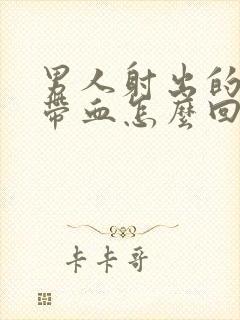 男人射出的
帶血怎麼回
卡卡哥